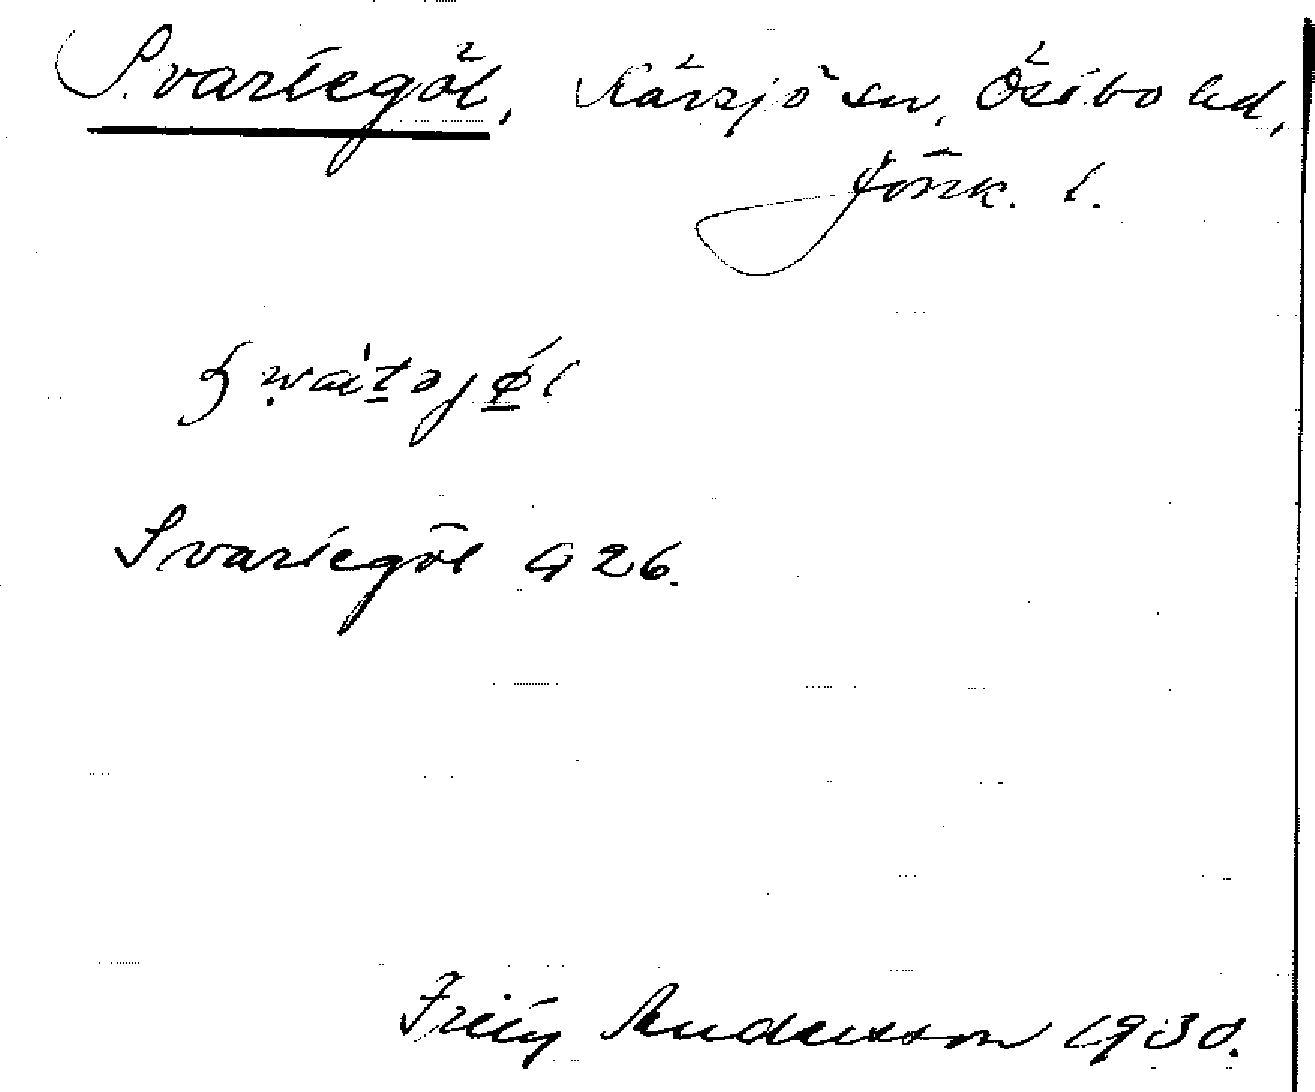 Svartegöl, Kävsjö sn, Östbo hd,
Jönk. l.
Svartegöl G 26.
Fritz Andersson 1930.